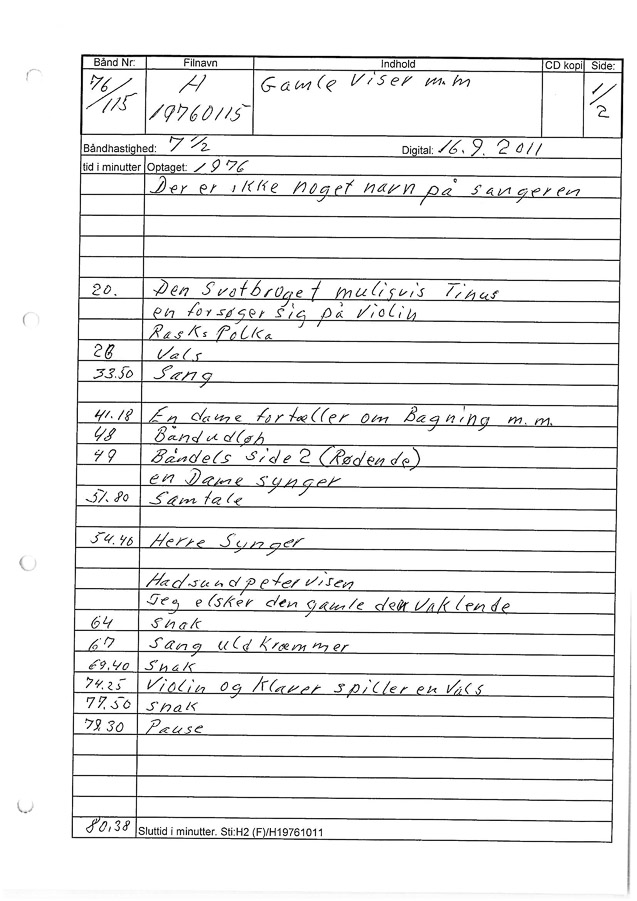 Bånd Nr: Filnavn Indhold CD kopi Side:
76/115 H 19760115 Gamle Viser m.m 1/2
Båndhastighed: 7 1/2 Digital: 16.9.2011
tid i minutter Optaget: 1976
Der er ikke noget navn på sangeren
20. Den Svotbroget muligvis Tinus
en forsøger sig på violin
Rasks Polka
28 Vals
33.50 Sang
41.18 En dame fortæller om Bagning m.m.
48 Båndudløb
49 Båndels side 2 (Rødende)
en Dame synger
51.80 Samtale
54.46 Herre Synger
Hadsundpetervisen
Jeg elsker den gamle den vaklende
64 snak
67 Sang uldkræmmer
69.40 Snak
74.25 Violin og Klaver spiller en Vals
77.50 snak
78.30 Pause
80,38 Sluttid i minutter. Sti:H2 (F)/H19761011